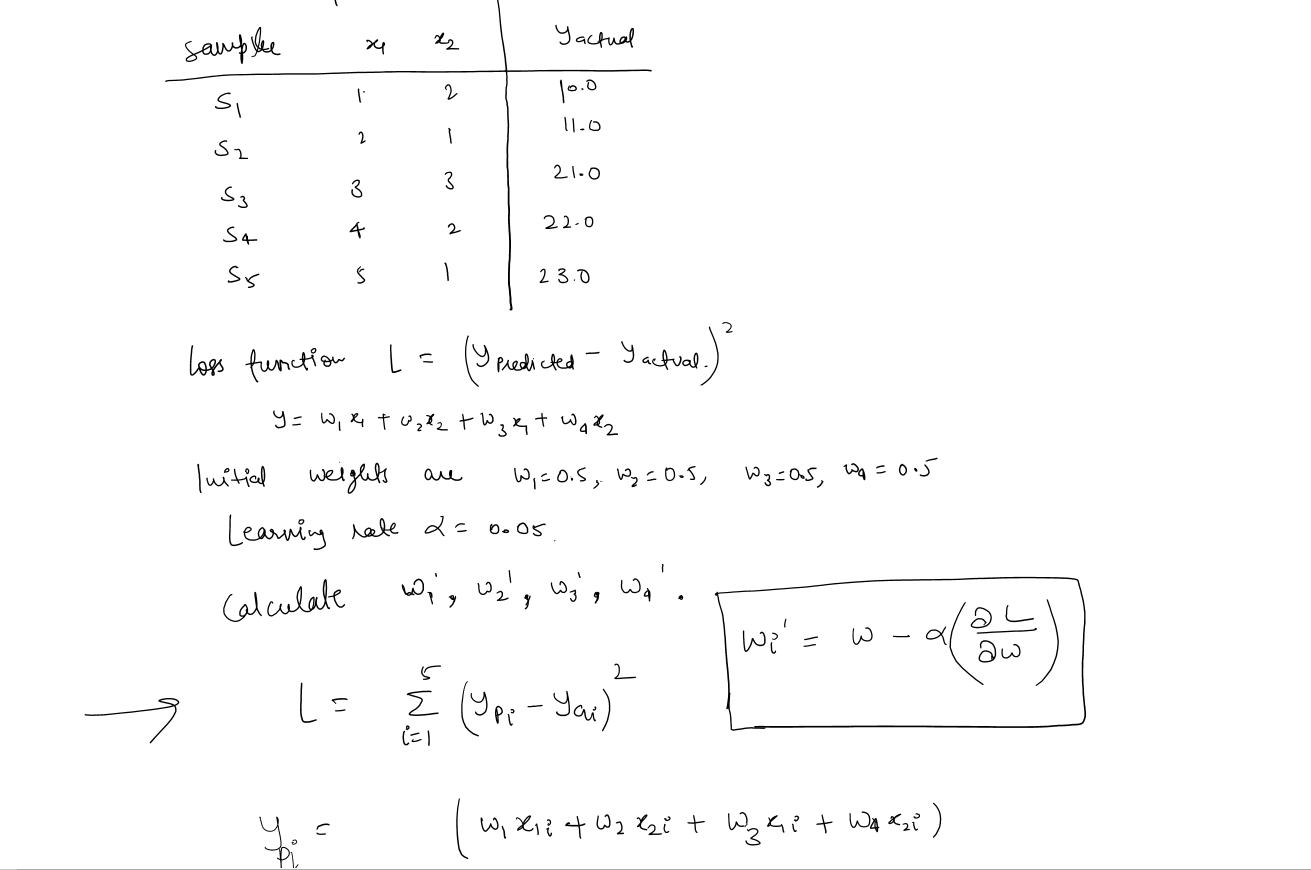 sample x₁ x₂ y actual
S₁ 1 2 10.0
S₂ 2 1 11.0
S₃ 3 3 21.0
S₄ 4 2 22.0
S₅ 5 1 23.0
Loss function L = (y predicted - y actual.)²
y = w₁x₁ + w₂x₂ + w₃x₁ + w₄x₂
Initial weights are w₁=0.5, w₂=0.5, w₃=0.5, w₄=0.5
Learning rate α = 0.05.
Calculate w₁', w₂', w₃', w₄'.
wᵢ' = w - α(∂L/∂w)
→ L = Σᵢ₌₁⁵ (y_pᵢ - y_aᵢ)²
y_pᵢ = (w₁x₁ᵢ + w₂x₂ᵢ + w₃x₁ᵢ + w₄x₂ᵢ)